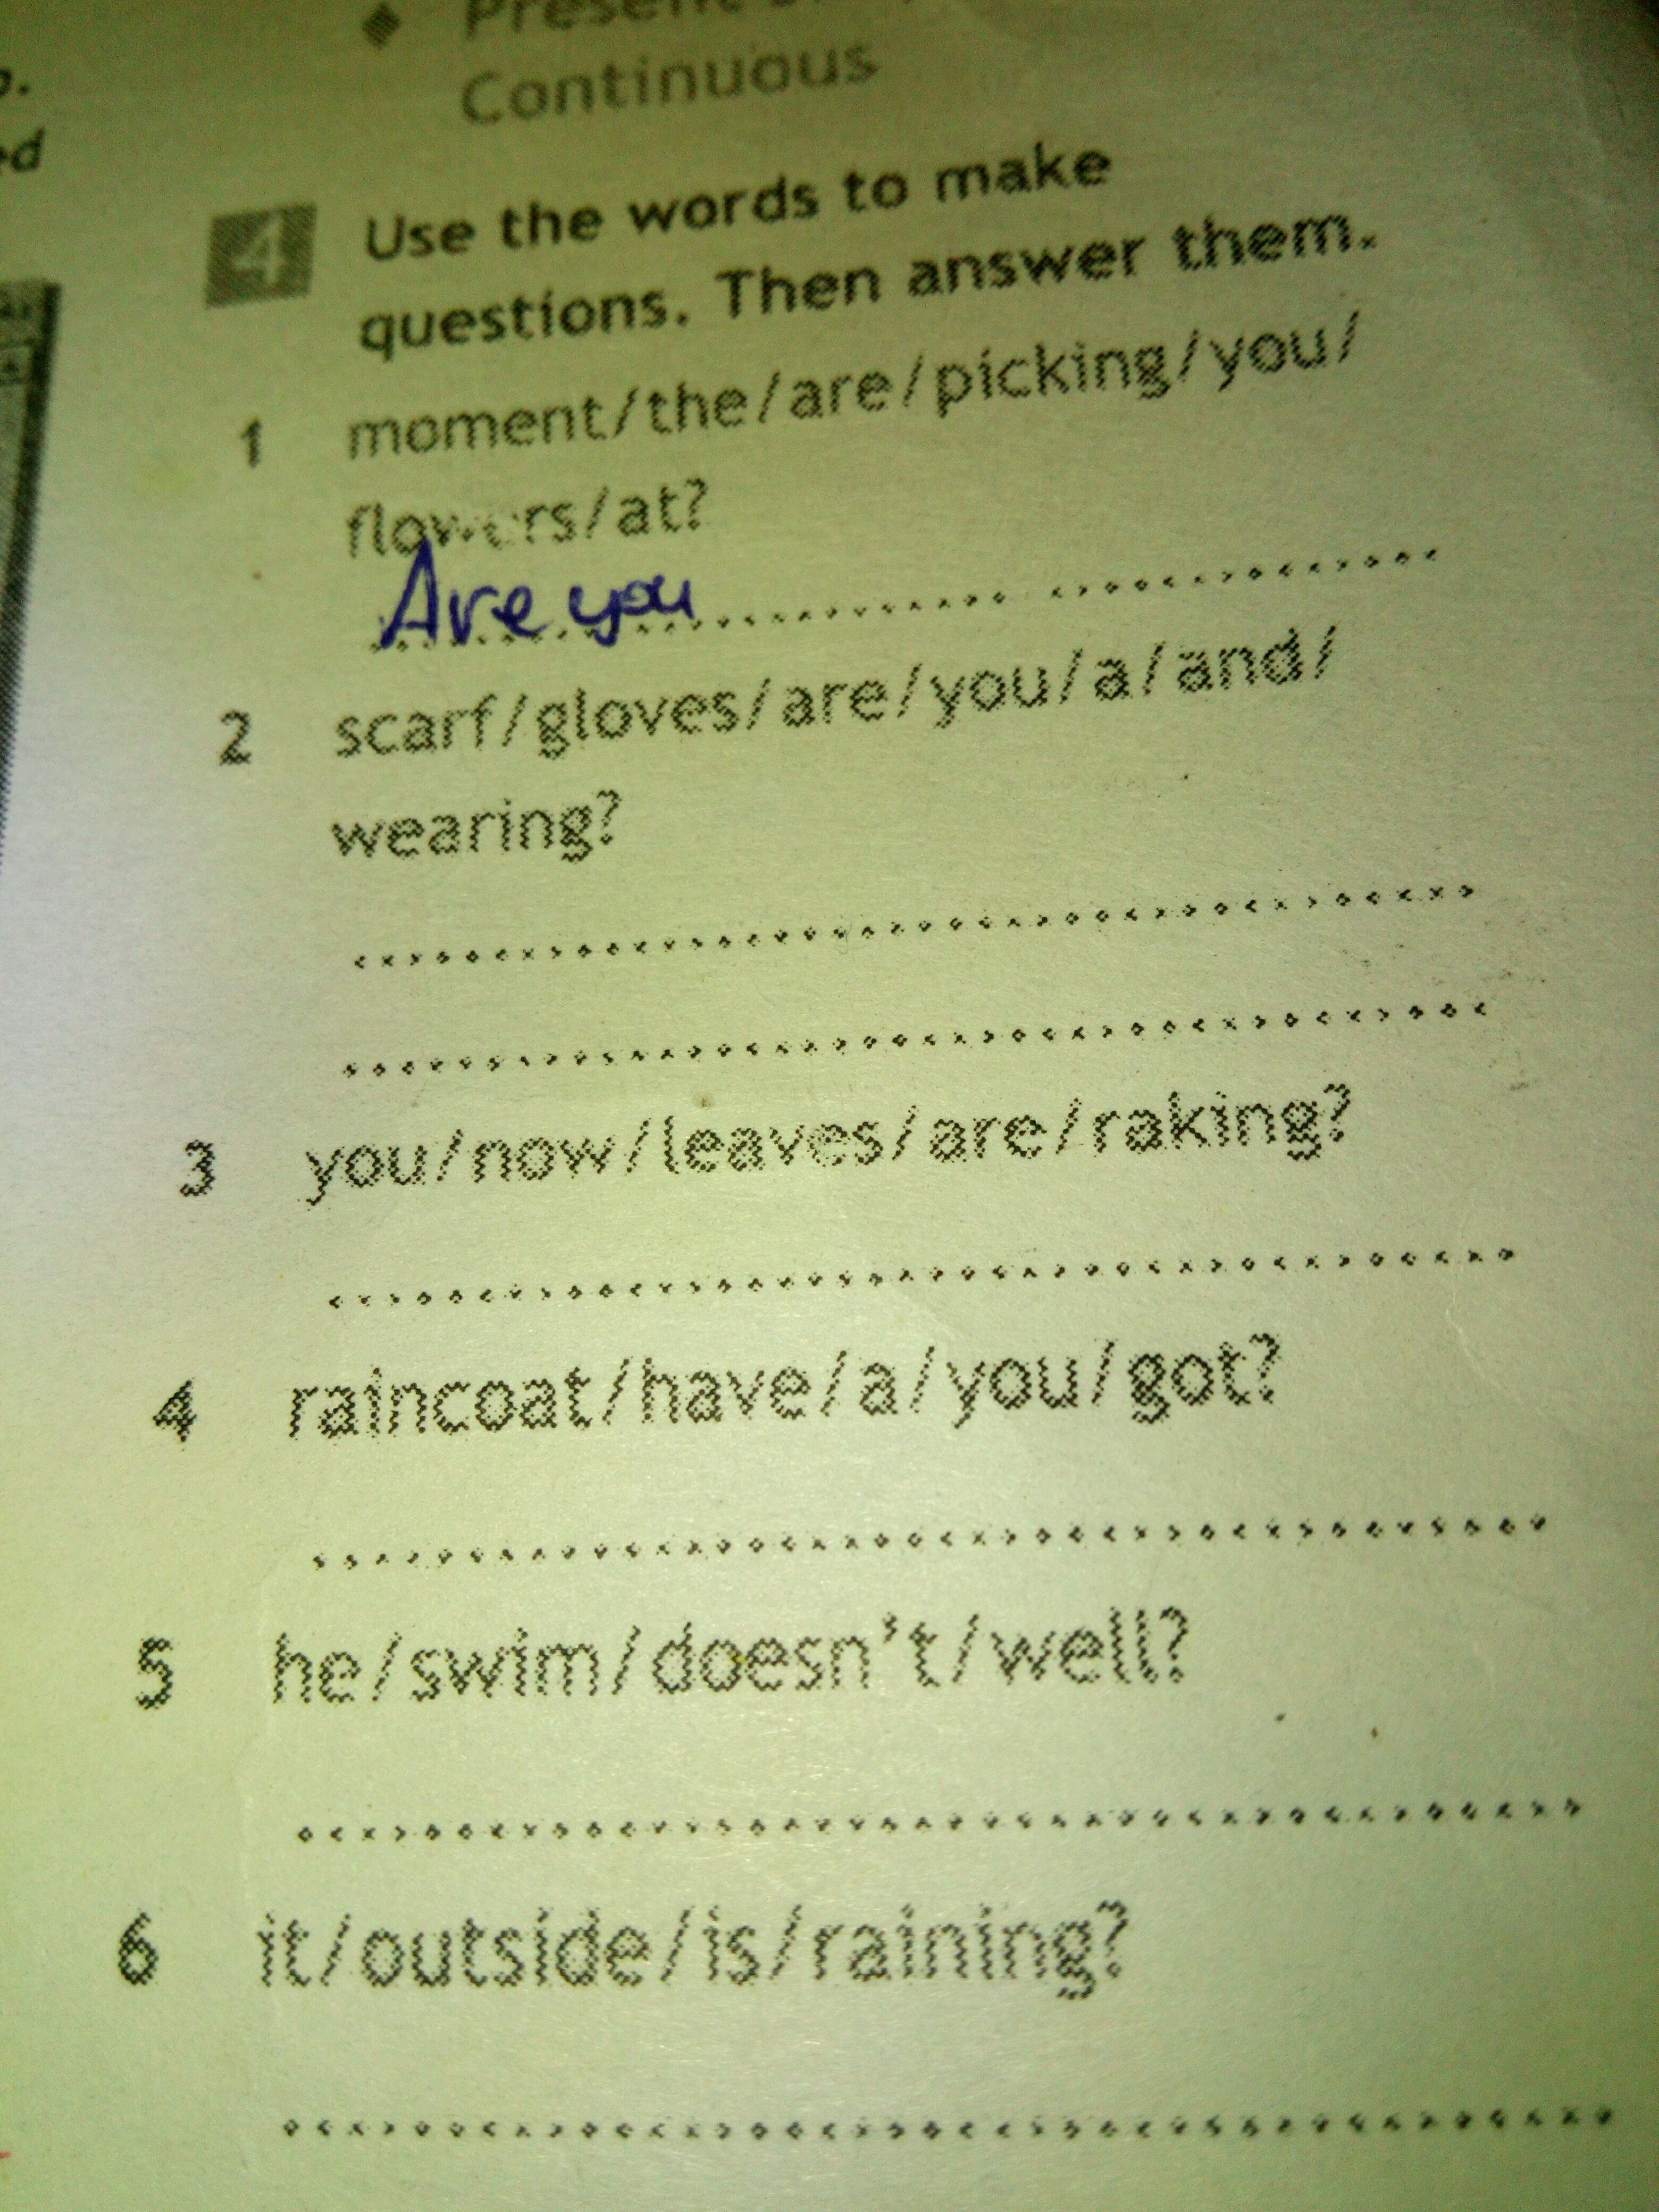 Continuous
4 Use the words to make
questions. Then answer them.
1 moment/the/are/picking/you/
flowers/at?
Are you
2 scarf/gloves/are/you/a/and/
wearing?
3 you/now/leaves/are/raking?
4 raincoat/have/a/you/got?
5 he/swim/doesn't/well?
6 it/outside/is/raining?